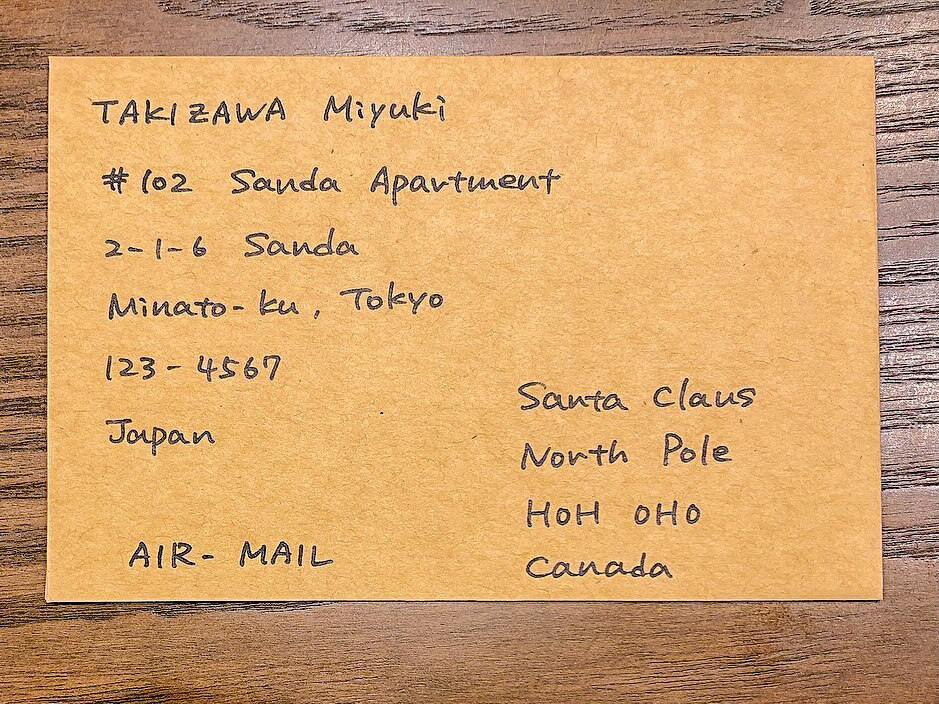 TAKIZAWA Miyuki
#102 Sanda Apartment
2-1-6 Sanda
Minato-ku, Tokyo
123-4567
Japan
AIR-MAIL
Santa Claus
North Pole
HOH OHO
Canada